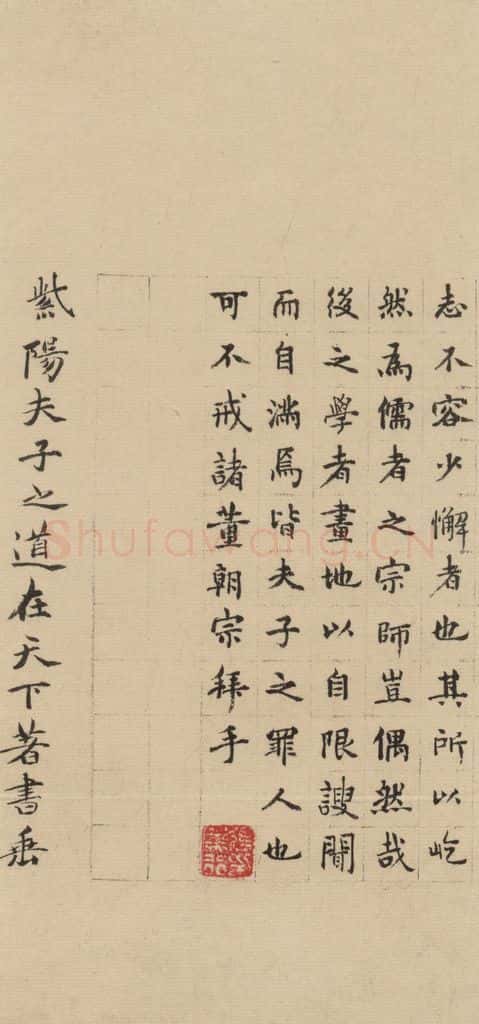 志不容少懈者也其所以屹
然為儒者之宗師豈偶然哉
後之學者畫地以自限謏聞
而自滿焉皆夫子之罪人也
可不戒諸董朝宗拜手
紫陽夫子之道在天下著書垂
Shufawang.CN